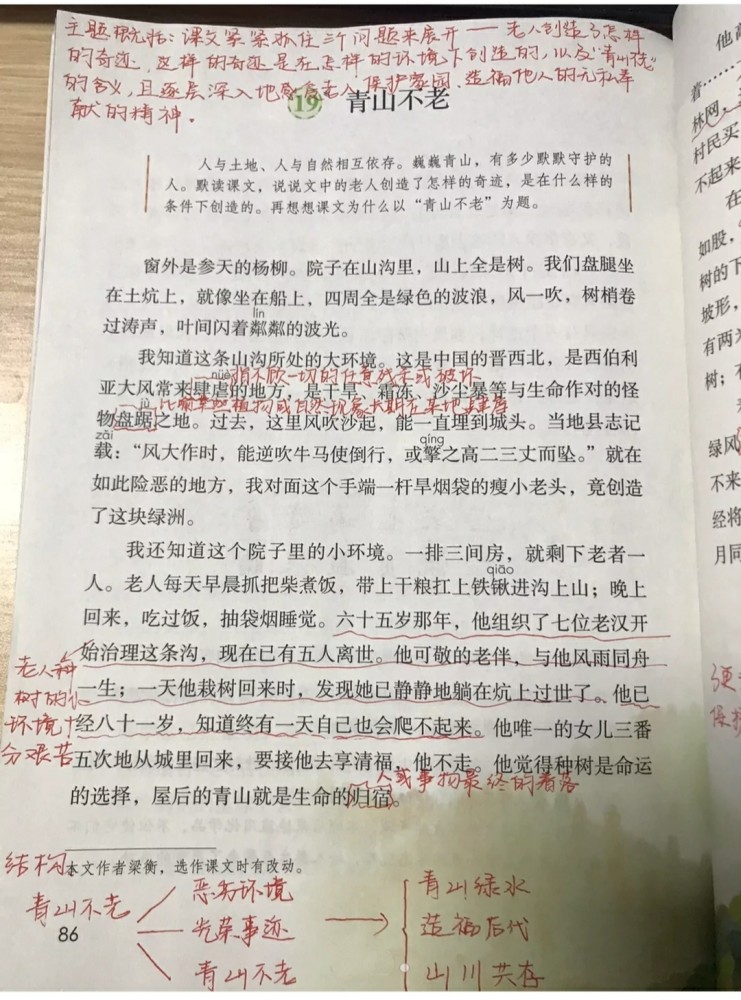 主题概括：课文紧紧抓住三个问题来展开——老人创造了怎样
的奇迹，这样的奇迹是在怎样的环境下创造的，以及“青山不老”
的含义，且逐层深入地感受老人保护家园、造福他人的无私奉
献的精神。
19 青山不老
人与土地、人与自然相互依存。巍巍青山，有多少默默守护的
人。默读课文，说说文中的老人创造了怎样的奇迹，是在什么样的
条件下创造的。再想想课文为什么以“青山不老”为题。
窗外是参天的杨柳。院子在山沟里，山上全是树。我们盘腿坐
在土炕上，就像坐在船上，四周全是绿色的波浪，风一吹，树梢卷
lín
过涛声，叶间闪着粼粼的波光。
我知道这条山沟所处的大环境。这是中国的晋西北，是西伯利
nüè
指不顾一切的任意残杀或破坏
亚大风常来肆虐的地方，是干旱、霜冻、沙尘暴等与生命作对的怪
jù
物盘踞之地。过去，这里风吹沙起，能一直埋到城头。当地县志记
zǎi qíng
载：“风大作时，能逆吹牛马使倒行，或擎之高二三丈而坠。”就在
如此险恶的地方，我对面这个手端一杆旱烟袋的瘦小老头，竟创造
了这块绿洲。
我还知道这个院子里的小环境。一排三间房，就剩下老者一
qiāo
人。老人每天早晨抓把柴煮饭，带上干粮扛上铁锹进沟上山；晚上
回来，吃过饭，抽袋烟睡觉。六十五岁那年，他组织了七位老汉开
始治理这条沟，现在已有五人离世。他可敬的老伴，与他风雨同舟
一生；一天他栽树回来时，发现她已静静地躺在炕上过世了。他已
经八十一岁，知道终有一天自己也会爬不起来。他唯一的女儿三番
五次地从城里回来，要接他去享清福，他不走。他觉得种树是命运
人或事物最终的着落
的选择，屋后的青山就是生命的归宿。
老人种
树的小
环境十
分艰苦
本文作者梁衡，选作课文时有改动。
结构
青山不老
恶劣环境
光荣事迹
青山不老
青山绿水
造福后代
山川共存
86
他
着……
林网，
村民买
不起来
在
如股，
树的下
坡形，
有两
树；有
绿风
不来
经将
月同
保护